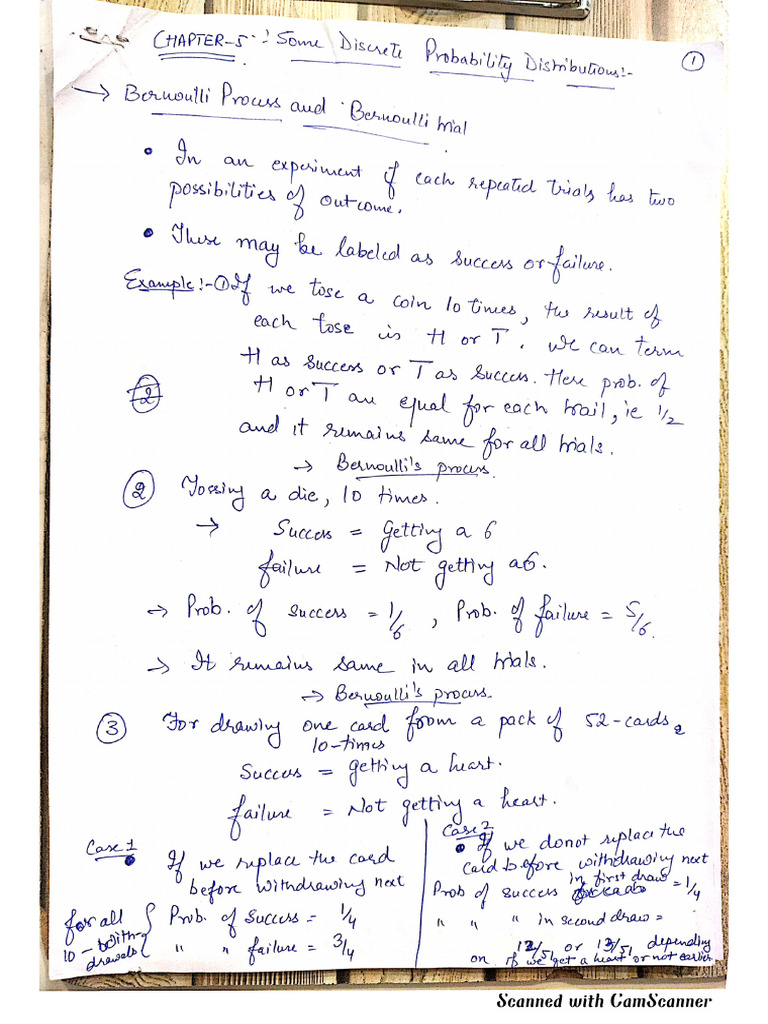 CHAPTER-5 :- Some Discrete Probability Distributions:-
①
→ Bernoulli Process and Bernoulli trial
• In an experiment if each repeated trials has two
possibilities of outcome.
• These may be labeled as success or failure.
Example:- ① If we tose a coin 10 times, the result of
each tose is H or T. We can term
H as success or T as success. Here prob. of
② H or T are equal for each trail, ie 1/2
and it remains same for all trials.
→ Bernoulli's process.
② Tossing a die, 10 times.
→ Success = getting a 6
failure = Not getting a 6.
→ Prob. of success = 1/6, Prob. of failure = 5/6.
→ It remains same in all trials.
→ Bernoulli's process.
③ For drawing one card from a pack of 52-cards,
10-times
Success = getting a heart.
failure = Not getting a heart.
Case 1
• If we replace the card
before withdrawing next
for all
10-with-
drawals
{ Prob. of Success = 1/4
" " failure = 3/4
Case 2
• If we donot replace the
card before withdrawing next
Prob of success in first draw = 1/4
" " " in second draw =
12/51 or 13/51 depending
on if we get a heart or not earlier
Scanned with CamScanner